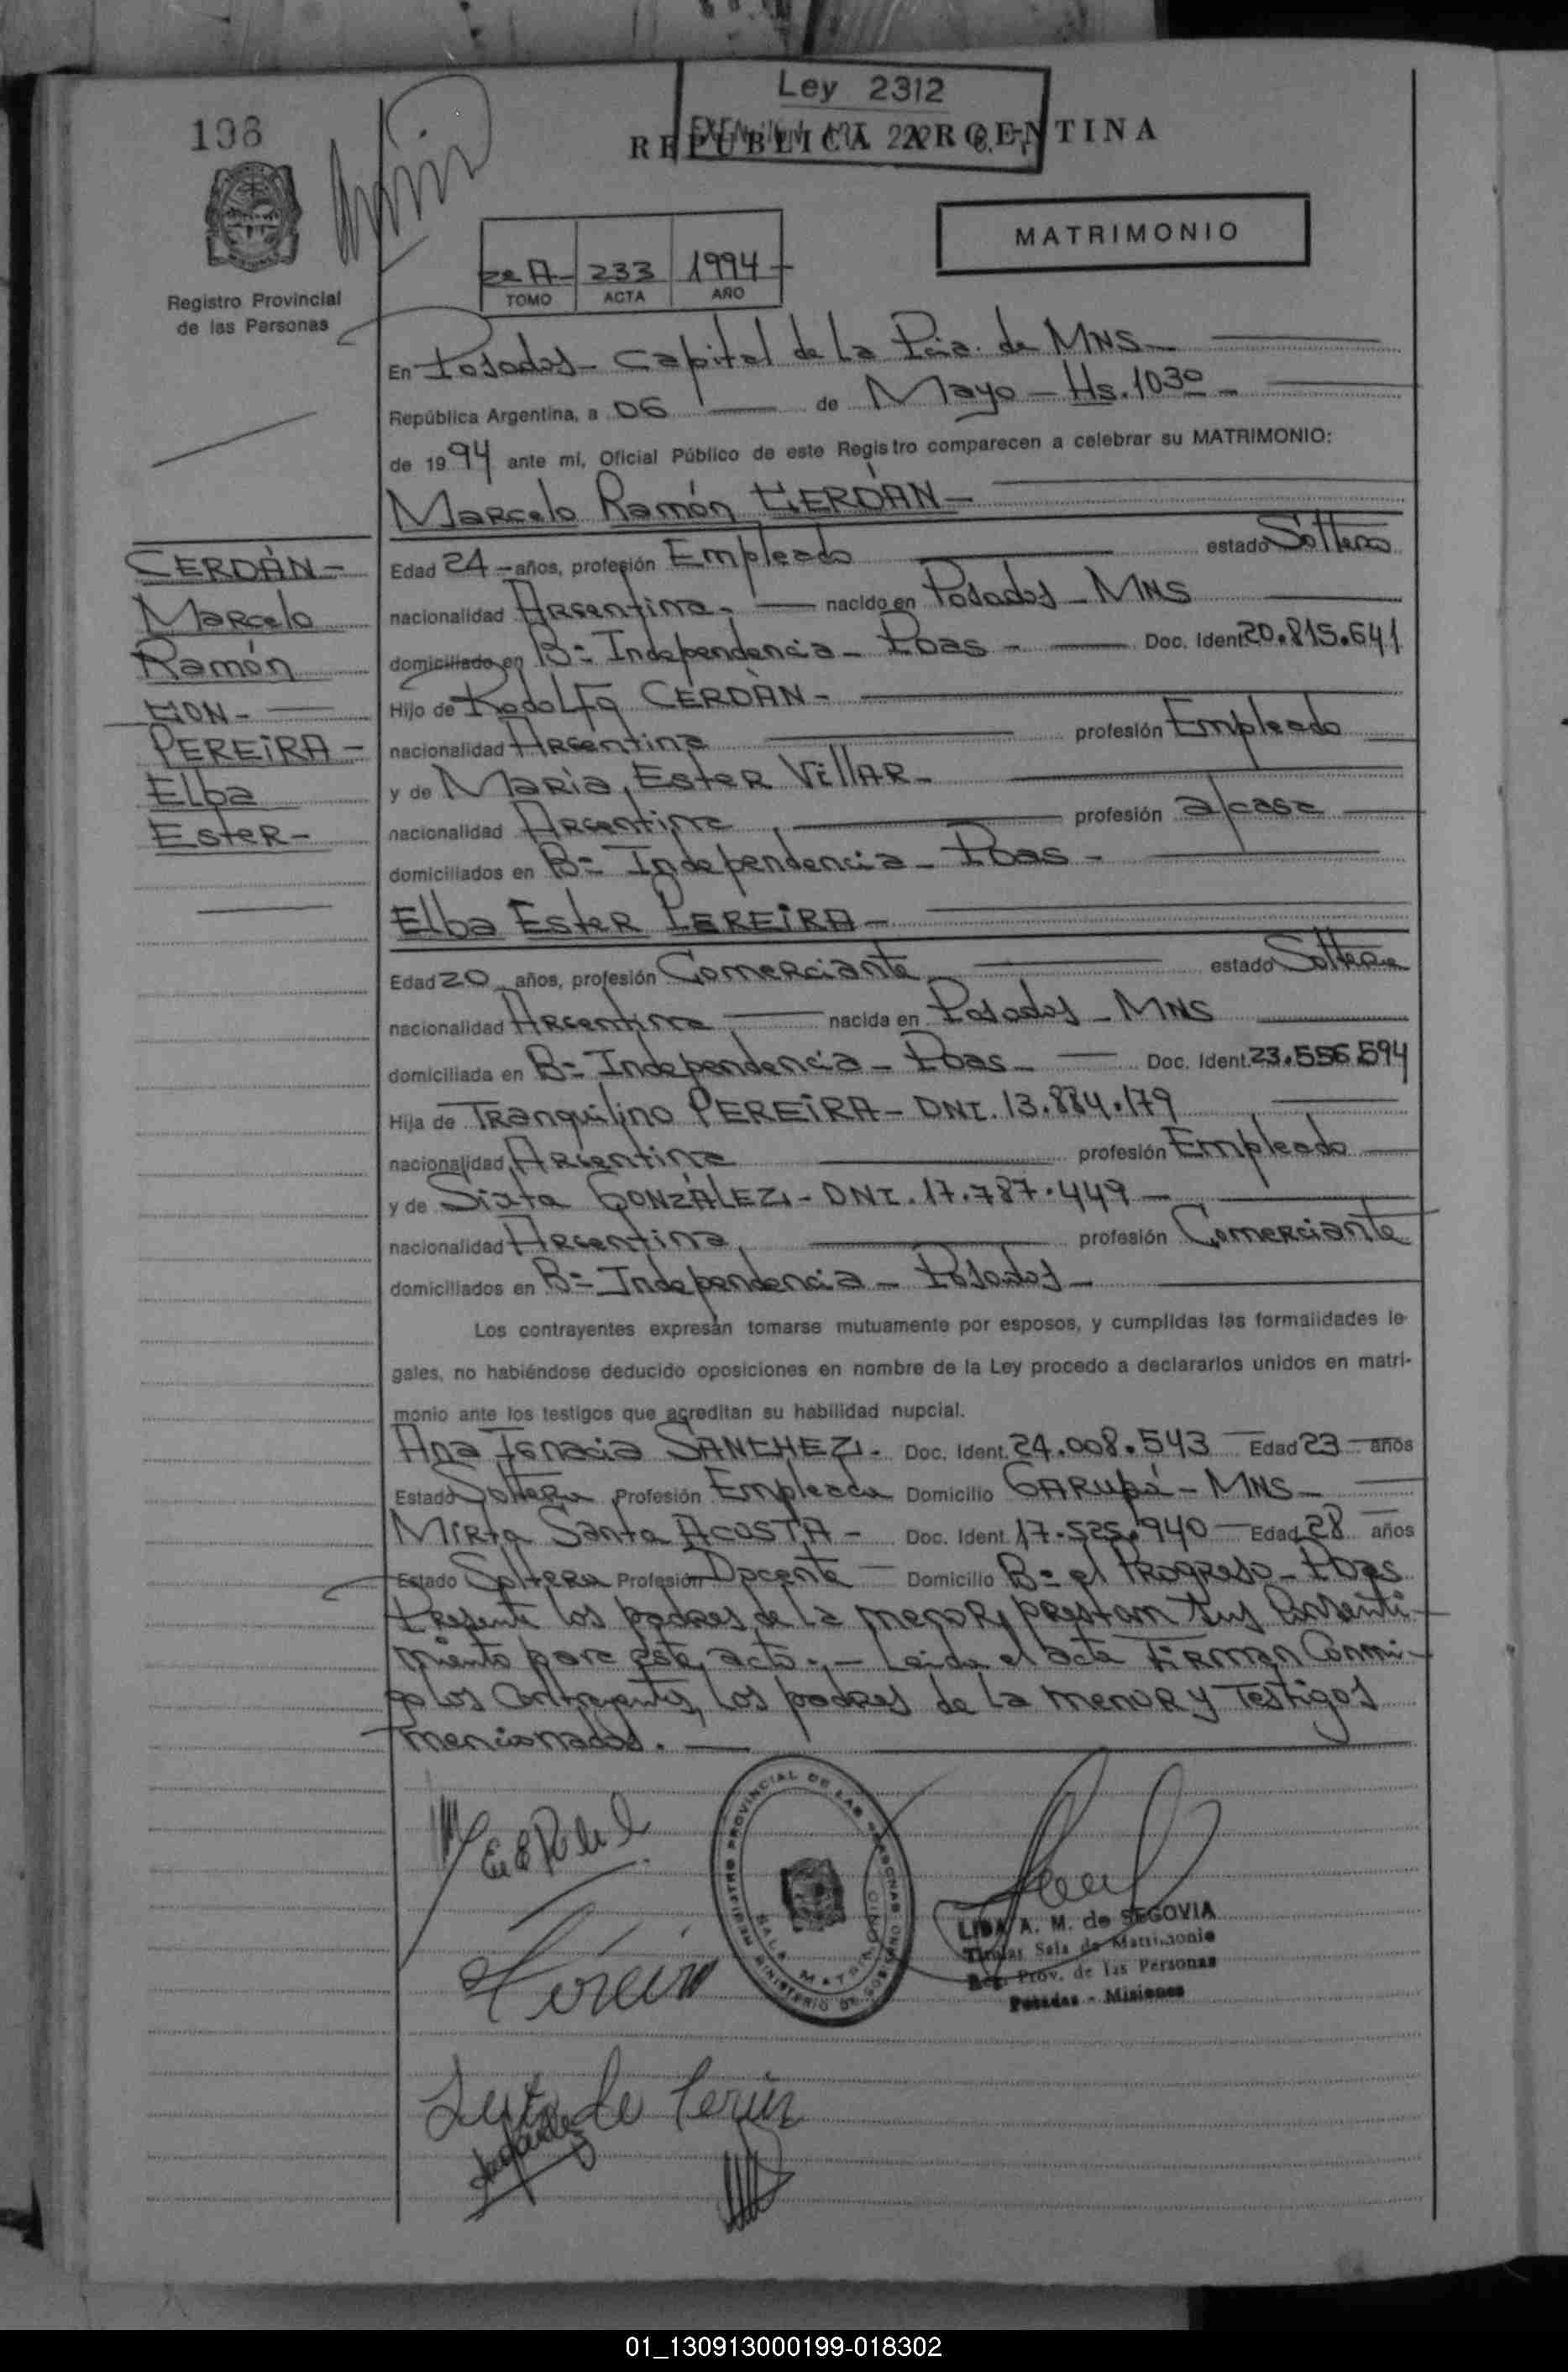 198
Ley 2312
REPUBLICA ARGENTINA
MATRIMONIO
Registro Provincial
de las Personas
2º A 233 1994
TOMO ACTA AÑO
En Posadas - Capital de La Pcia. de MNS -
República Argentina, a 06 de Mayo - Hs. 10³⁰ -
de 1994 ante mí, Oficial Público de este Registro comparecen a celebrar su MATRIMONIO:
Marcelo Ramón CERDÁN -
Edad 24 - años, profesión Empleado estado Soltero
nacionalidad Argentina - nacido en Posadas - MNS
domiciliado en Bº Independencia - Pdas - Doc. Ident. 20.815.641
Hijo de Rodolfo CERDÁN -
nacionalidad Argentina profesión Empleado
y de María Ester VillAR -
nacionalidad Argentina profesión a/casa
domiciliados en Bº Independencia - Pdas -
Elba Ester PEREiRA -
Edad 20 años, profesión Comerciante estado Soltera
nacionalidad Argentina nacida en Posadas - MNS
domiciliada en Bº Independencia - Pdas - Doc. Ident. 23.556.594
Hija de Tranquilino PEREiRA - DNI. 13.884.179
nacionalidad Argentina profesión Empleado
y de Sixta GONZÁLEZ - DNI. 17.787.449 -
nacionalidad Argentina profesión Comerciante
domiciliados en Bº Independencia - Posadas -
Los contrayentes expresan tomarse mutuamente por esposos, y cumplidas las formalidades le-
gales, no habiéndose deducido oposiciones en nombre de la Ley procedo a declararlos unidos en matri-
monio ante los testigos que acreditan su habilidad nupcial.
Ana Ignacia SANCHEZ - Doc. Ident. 24.008.543 Edad 23 años
Estado Soltera Profesión Empleada Domicilio GARupá - MNS -
Mirta Santa ACOSTA - Doc. Ident. 17.525.940 Edad 28 años
Estado Soltera Profesión Docente Domicilio Bº el Progreso - Pdas
Presente los padres de la menor, prestan sus consenti-
miento para este acto. - Leida el acta Firman Conmi-
go los contrayentes, los padres de la menor y Testigos
mencionados.
CERDÁN -
Marcelo
Ramón
CON -
PEREiRA -
Elba
Ester -
REGISTRO PROVINCIAL DE LAS PERSONAS
MINISTERIO DE GOBIERNO
SALA MATRIMONIO
LIDA A. M. de SEGOVIA
Titular Sala de Matrimonio
Reg. Prov. de las Personas
Posadas - Misiones
01_130913000199-018302